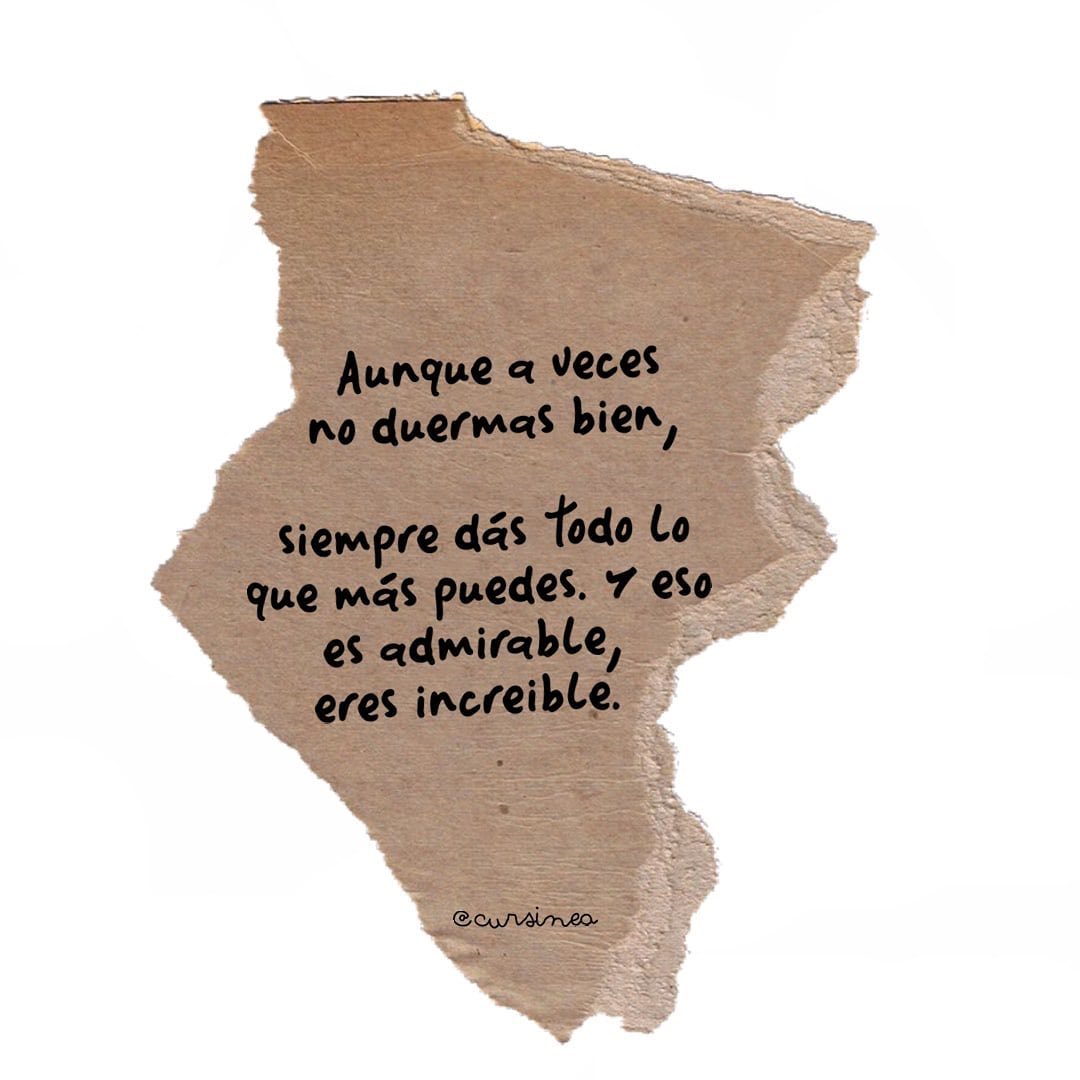 Aunque a veces
no duermas bien,
siempre dás todo lo
que más puedes. Y eso
es admirable,
eres increible.
@cursinea